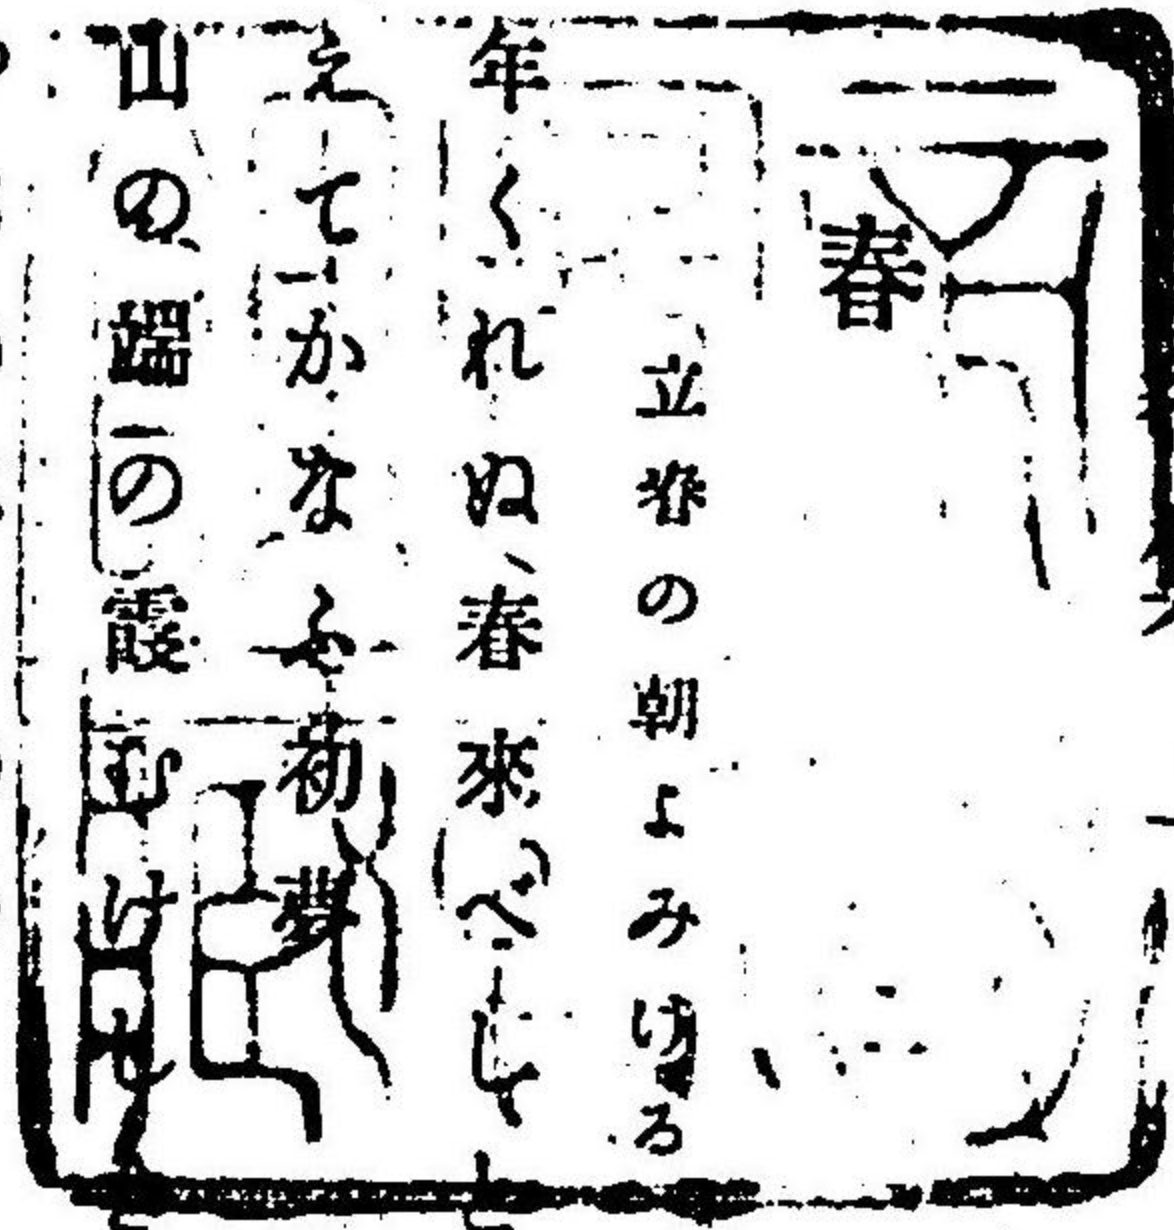 春
立春の朝よみける
年くれぬ、春來べしと
えてかなふ初夢
山の端の霞むけしき